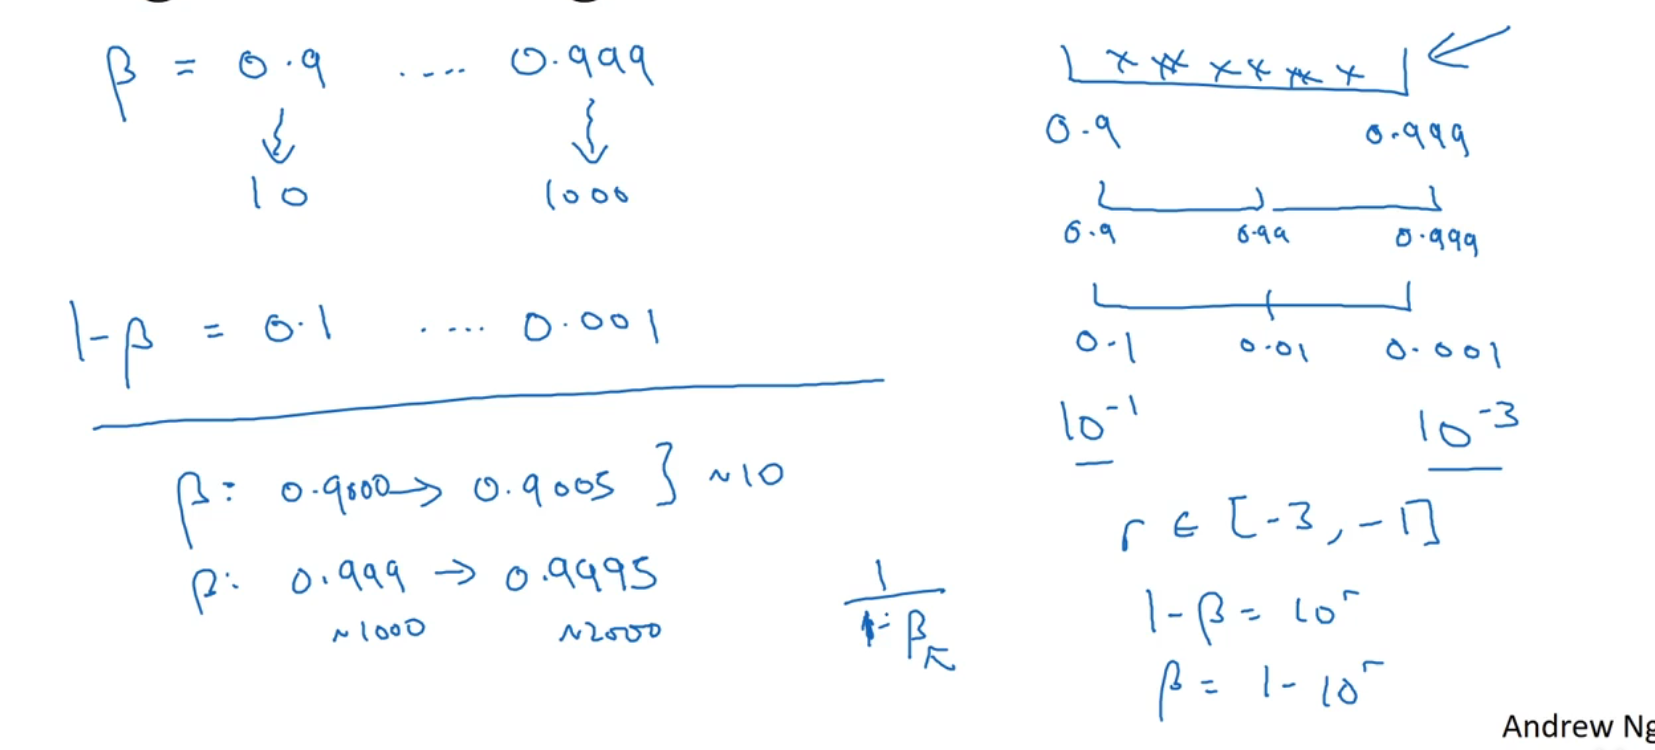 β = 0.9 .... 0.999
10 1000
1-β = 0.1 .... 0.001
β: 0.9000 → 0.9005 } ~10
β: 0.999 → 0.9995
~1000 ~2000
1
1-β
x x x x x x
0.9 0.999
0.9 0.99 0.999
0.1 0.01 0.001
10⁻¹ 10⁻³
r ∈ [-3, -1]
1-β = 10ʳ
β = 1-10ʳ
Andrew Ng